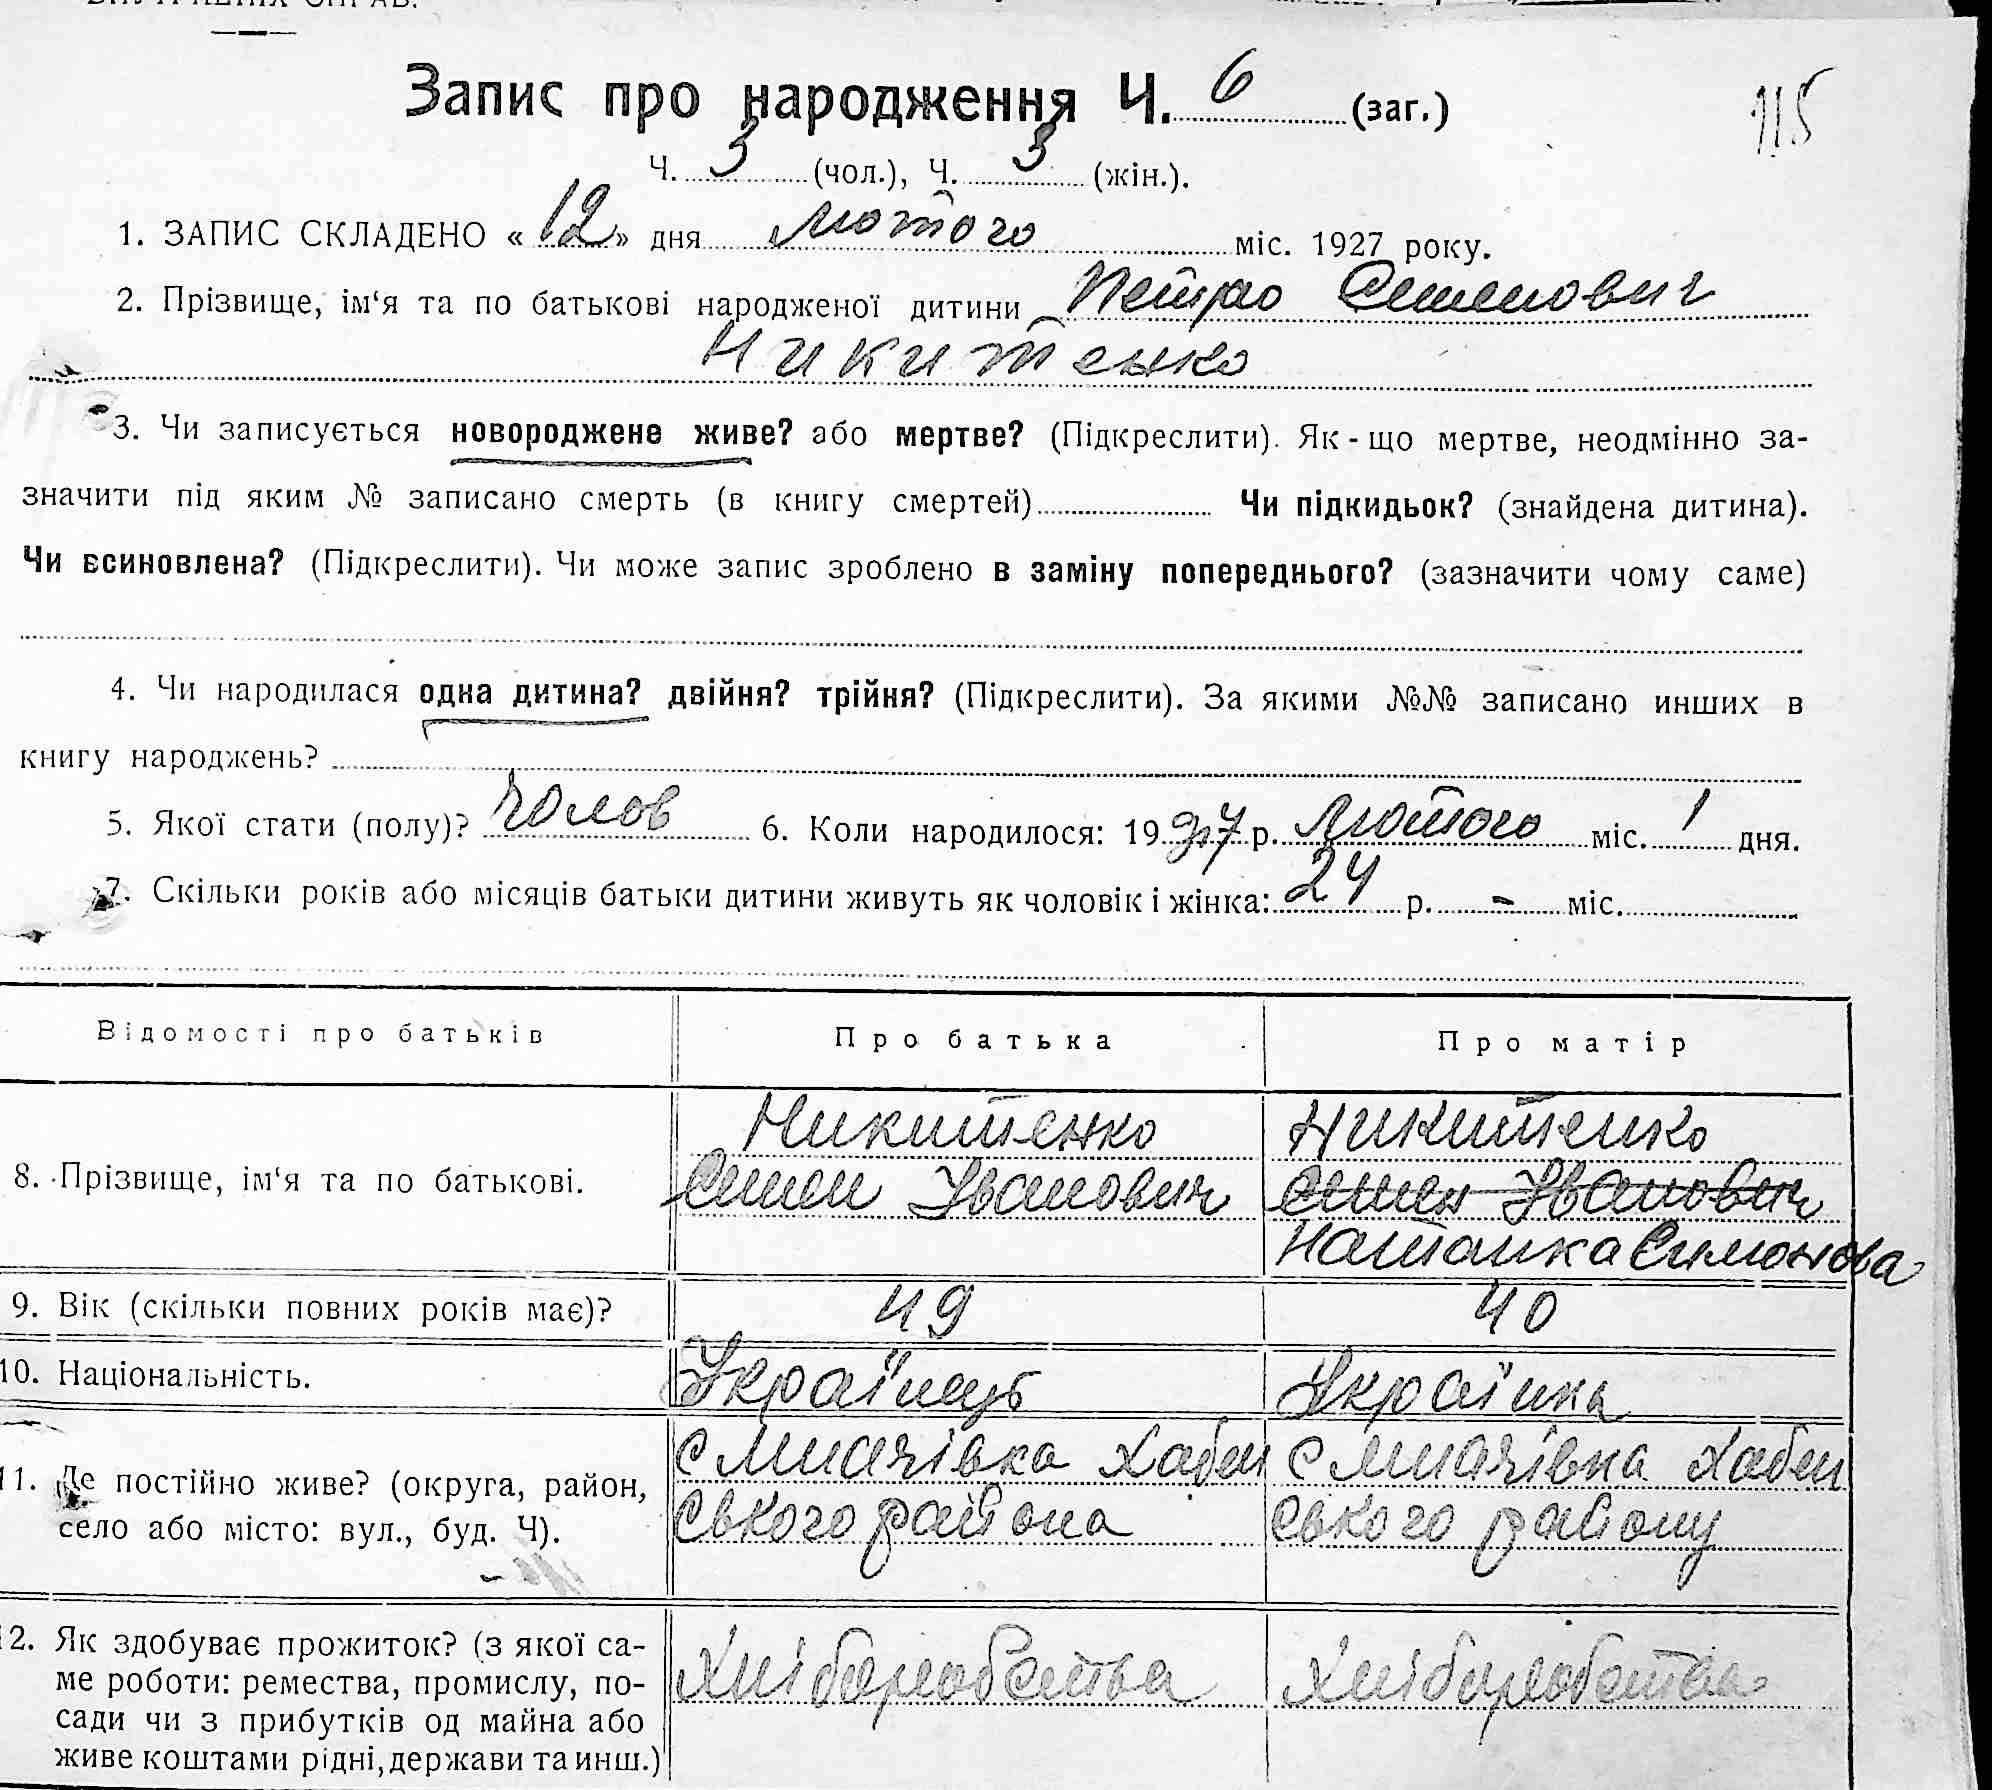 Запис про народження Ч. 6 (заг.)
115
Ч. 3 (чол.), Ч. 3 (жін.).
1. ЗАПИС СКЛАДЕНО « 12 » дня лютого міс. 1927 року.
2. Прізвище, ім‘я та по батькові народженої дитини Петро Семенович
Никитенко
3. Чи записується новороджене живе? або мертве? (Підкреслити). Як-що мертве, неодмінно за-
значити під яким № записано смерть (в книгу смертей) Чи підкидьок? (знайдена дитина).
Чи всиновлена? (Підкреслити). Чи може запис зроблено в заміну попереднього? (зазначити чому саме)
4. Чи народилася одна дитина? двійня? трійня? (Підкреслити). За якими №№ записано инших в
книгу народжень?
5. Якої стати (полу)? Чолов 6. Коли народилося: 1927 р. Лютого міс. 1 дня.
7. Скільки років або місяців батьки дитини живуть як чоловік і жінка: 24 р. - міс.
Відомості про батьків Про батька Про матір
8. Прізвище, ім‘я та по батькові. Никитенко Семен Іванович Никитенко Семен Іванович Наталка Симонова
9. Вік (скільки повних років має)? 49 40
10. Національність. Українець Українка
11. Де постійно живе? (округа, район,
село або місто: вул., буд. Ч).
с Хабен
ського района
с Хабен
ського району
12. Як здобуває прожиток? (з якої са-
ме роботи: ремества, промислу, по-
сади чи з прибутків од майна або
живе коштами рідні, держави та инш.)
Хліборобства Хліборобства